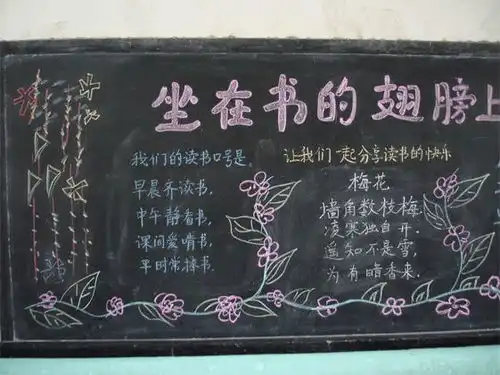 坐在书的翅膀上
我们的读书口号是
早晨齐读书,
中午静看书,
课间爱啃书,
平时常捧书.
让我们一起分享读书的快乐
梅花
墙角数枝梅,
凌寒独自开.
遥知不是雪,
为有暗香来.